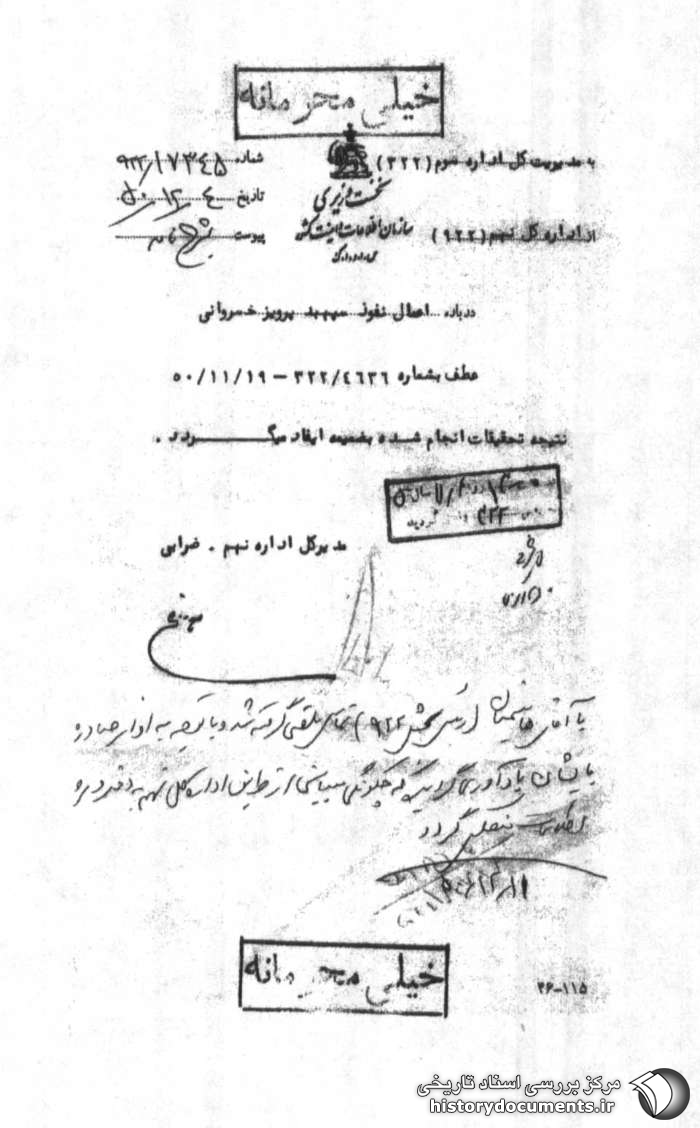 خیلی محرمانه
به مدیریت کل اداره سوم (۳۲۲)
شماره ۹۲۲/۱۷۳۴۵
نخست وزیری
تاریخ ۵۰/۱۲/۴
سازمان اطلاعات و امنیت کشور
از اداره کل نهم (۹۲۲)
پیوست بشرح نامه
س.ا.و.ا.ک
درباره اعمال نفوذ سپهبد پرویز خسروانی
عطف بشماره ۳۲۲/۴۶۳۶ – ۵۰/۱۱/۱۹
نتیجه تحقیقات انجام شده بضمیمه ایفاد میگردد .
مدیرکل اداره نهم . ضرابی
با آقای (رئیس بخش ۹۲۲) تماس تلفنی گرفته شد و با توجه به اوامر صادره
بایشان یادآوری گردید که چگونگی از طریق اداره کل نهم به دفتر ویژه
اطلاعات منعکس گردد
خیلی محرمانه
۲۶-۱۱۵
مرکز بررسی اسناد تاریخی
historydocuments.ir